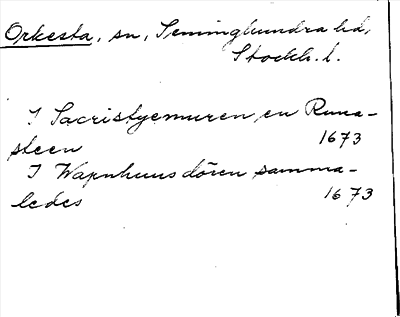 Orkesta, sn, Seminghundra hd,
Stockh. l.
I Sacristyemuren, en Runa-
steen 1673
I Wapnhuusdören samma-
ledes 1673